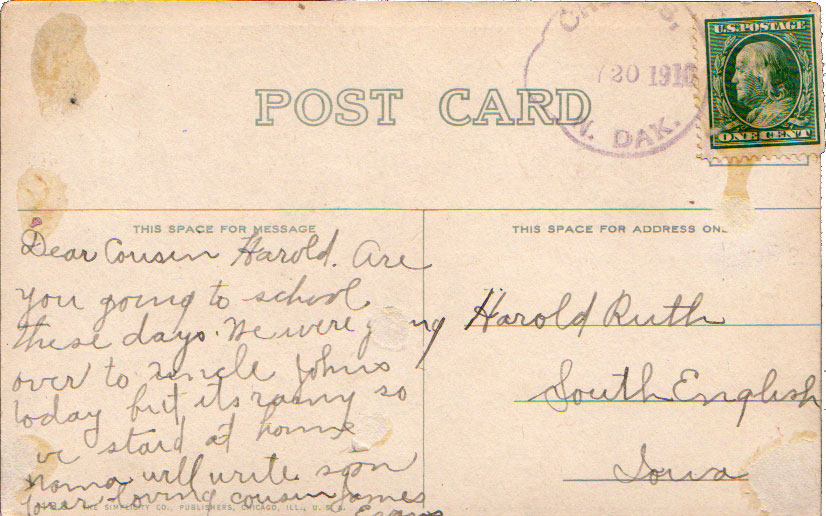 U.S. POSTAGE
20 1910
N. DAK.
POST CARD
ONE CENT
THIS SPACE FOR MESSAGE
Dear Cousin Harold. Are
you going to school
these days. We were going
over to Uncle Johns
today but its rainy so
we staid at home
mama will write soon
your loving cousin James
THE SIMPLICITY CO., PUBLISHERS, CHICAGO, ILL., U. S. A.
THIS SPACE FOR ADDRESS
Harold Ruth
South English
Iowa